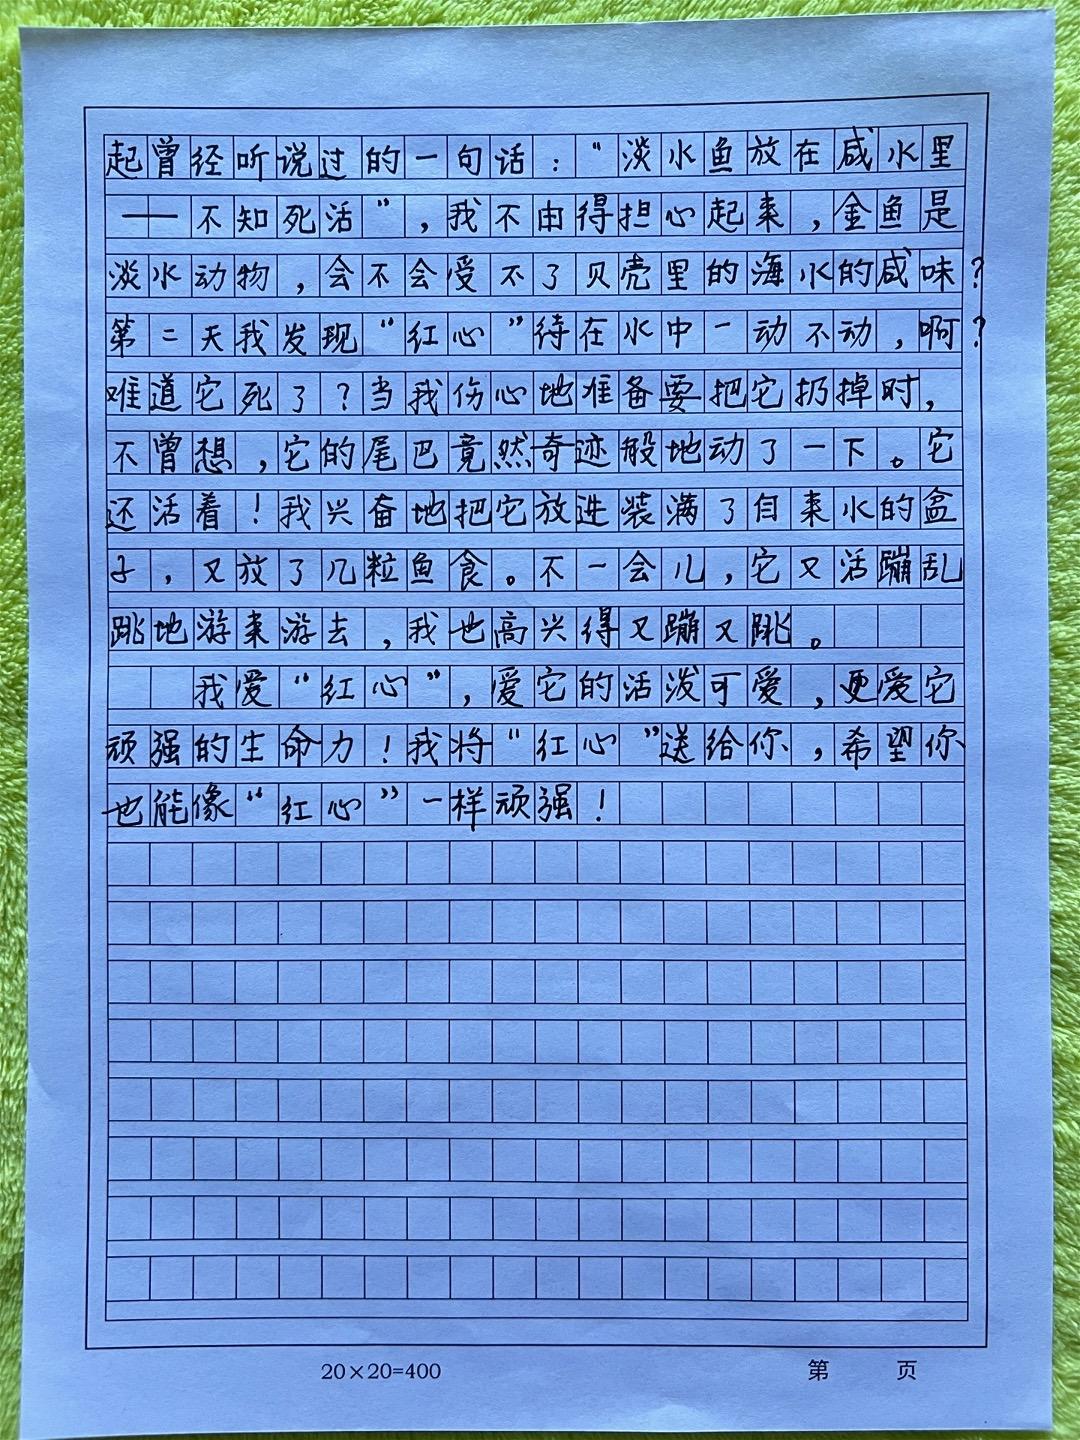 起曾经听说过的一句话：“淡水鱼放在咸水里
——不知死活”，我不由得担心起来，金鱼是
淡水动物，会不会受不了贝壳里的海水的咸味？
第二天我发现“红心”待在水中一动不动，啊？
难道它死了？当我伤心地准备要把它扔掉时，
不曾想，它的尾巴竟然奇迹般地动了一下。它
还活着！我兴奋地把它放进装满了自来水的盒
子，又放了几粒鱼食。不一会儿，它又活蹦乱
跳地游来游去，我也高兴得又蹦又跳。
我爱“红心”，爱它的活泼可爱，更爱它
顽强的生命力！我将“红心”送给你，希望你
也能像“红心”一样顽强！
20×20=400 第 页